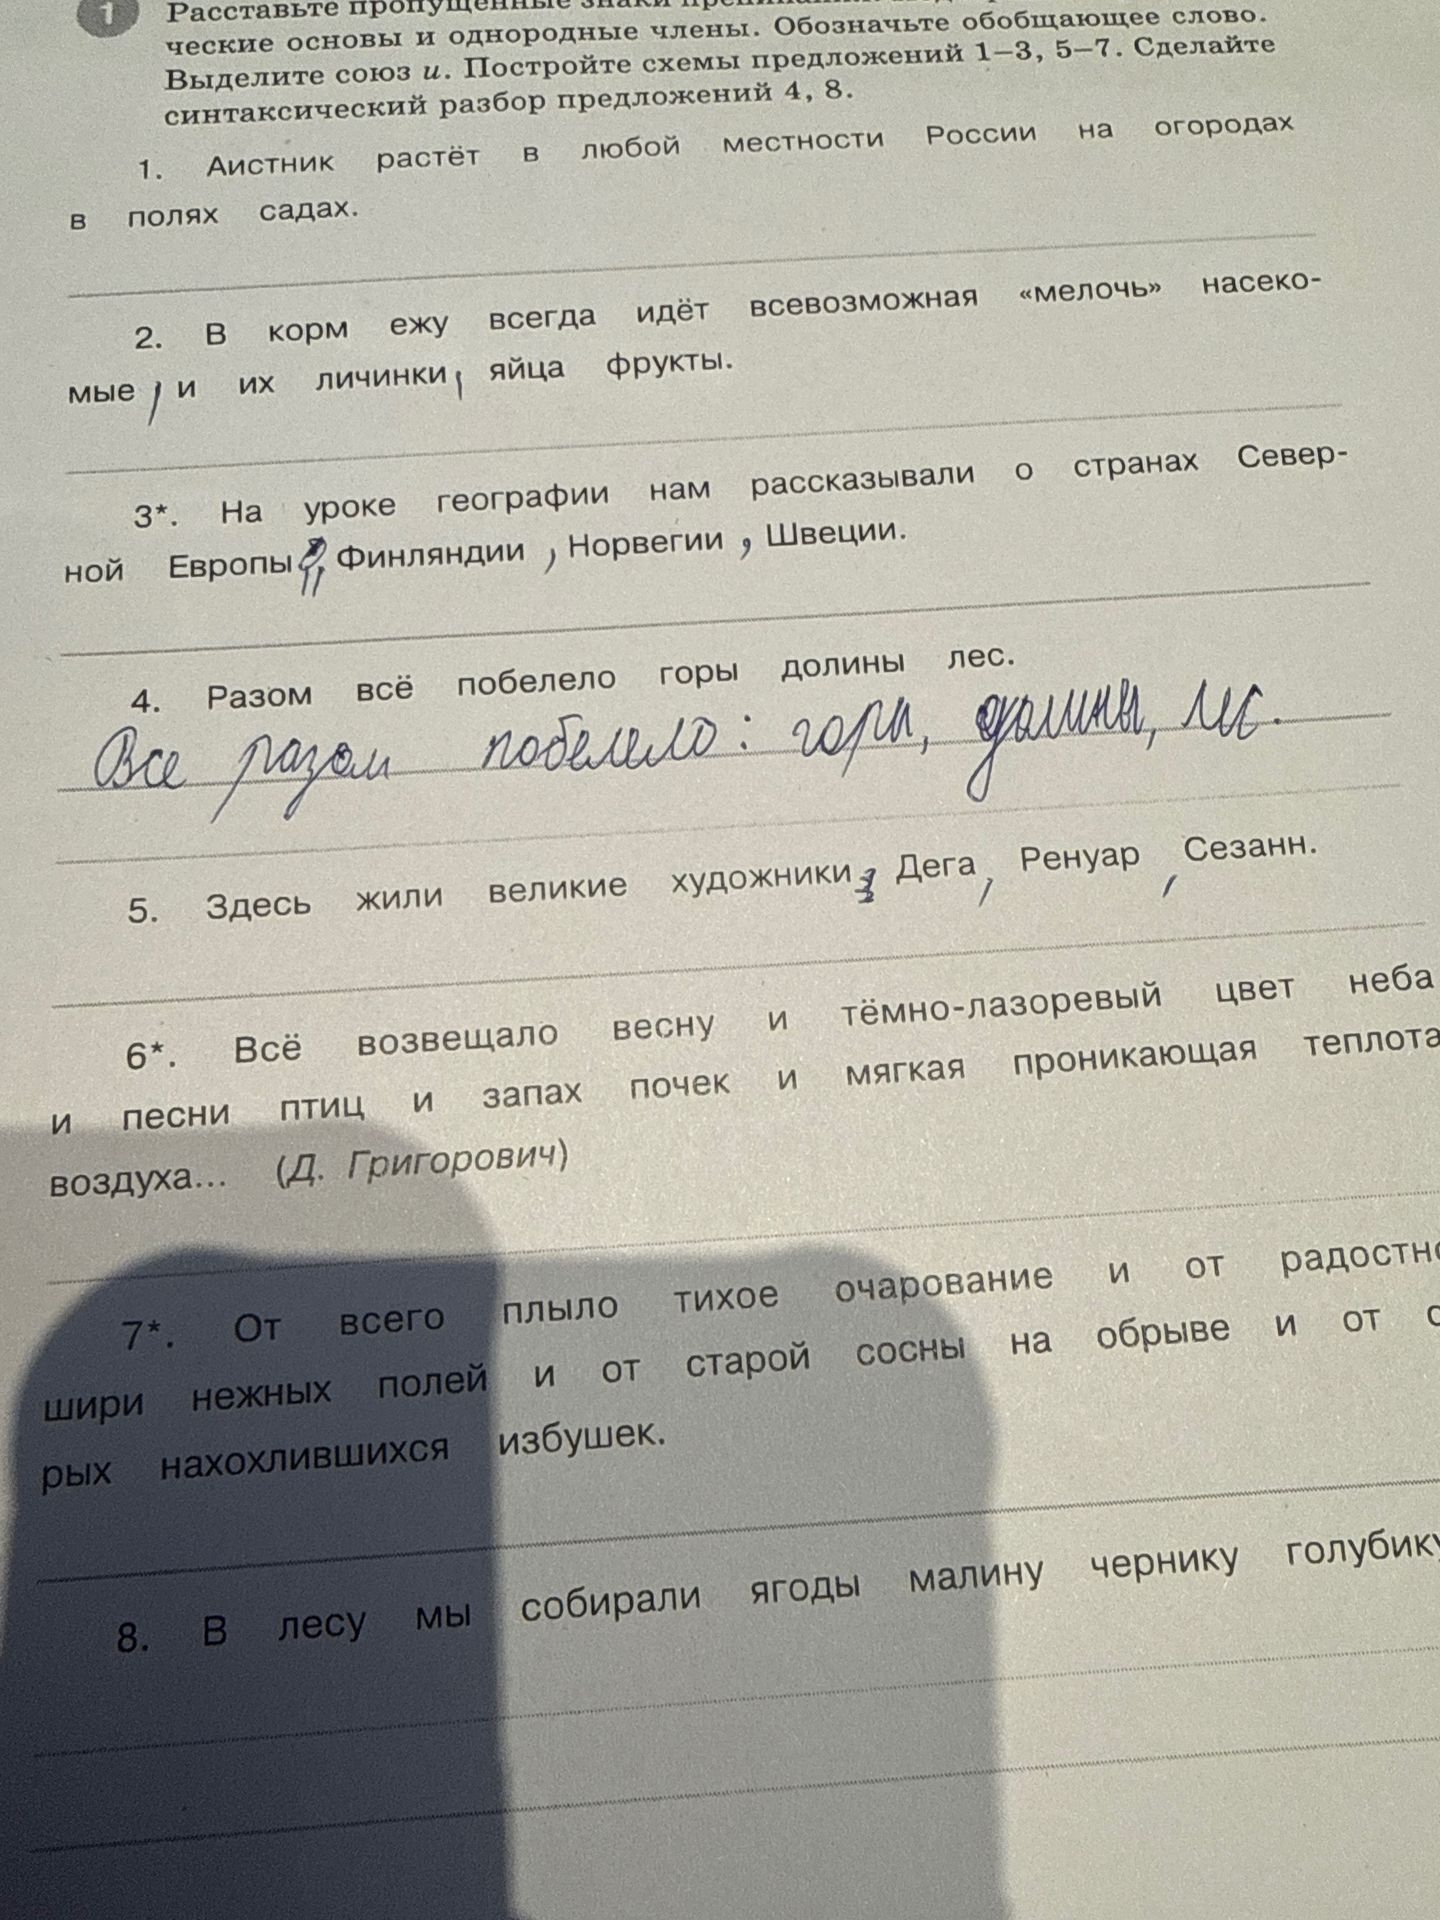 1 Расставьте пропущенные знаки
ческие основы и однородные члены. Обозначьте обобщающее слово.
Выделите союз и. Постройте схемы предложений 1–3, 5–7. Сделайте
синтаксический разбор предложений 4, 8.
1. Аистник растёт в любой местности России на огородах
в полях садах.
2. В корм ежу всегда идёт всевозможная «мелочь» насеко-
мые, и их личинки, яйца фрукты.
3*. На уроке географии нам рассказывали о странах Север-
ной Европы Финляндии, Норвегии, Швеции.
4. Разом всё побелело горы долины лес.
Все разом побелело: горы, долины, лес.
5. Здесь жили великие художники Дега, Ренуар, Сезанн.
6*. Всё возвещало весну и тёмно-лазоревый цвет неба
и песни птиц и запах почек и мягкая проникающая теплота
воздуха... (Д. Григорович)
7*. От всего плыло тихое очарование и от радостно
шири нежных полей и от старой сосны на обрыве и от с
рых нахохлившихся избушек.
8. В лесу мы собирали ягоды малину чернику голубику